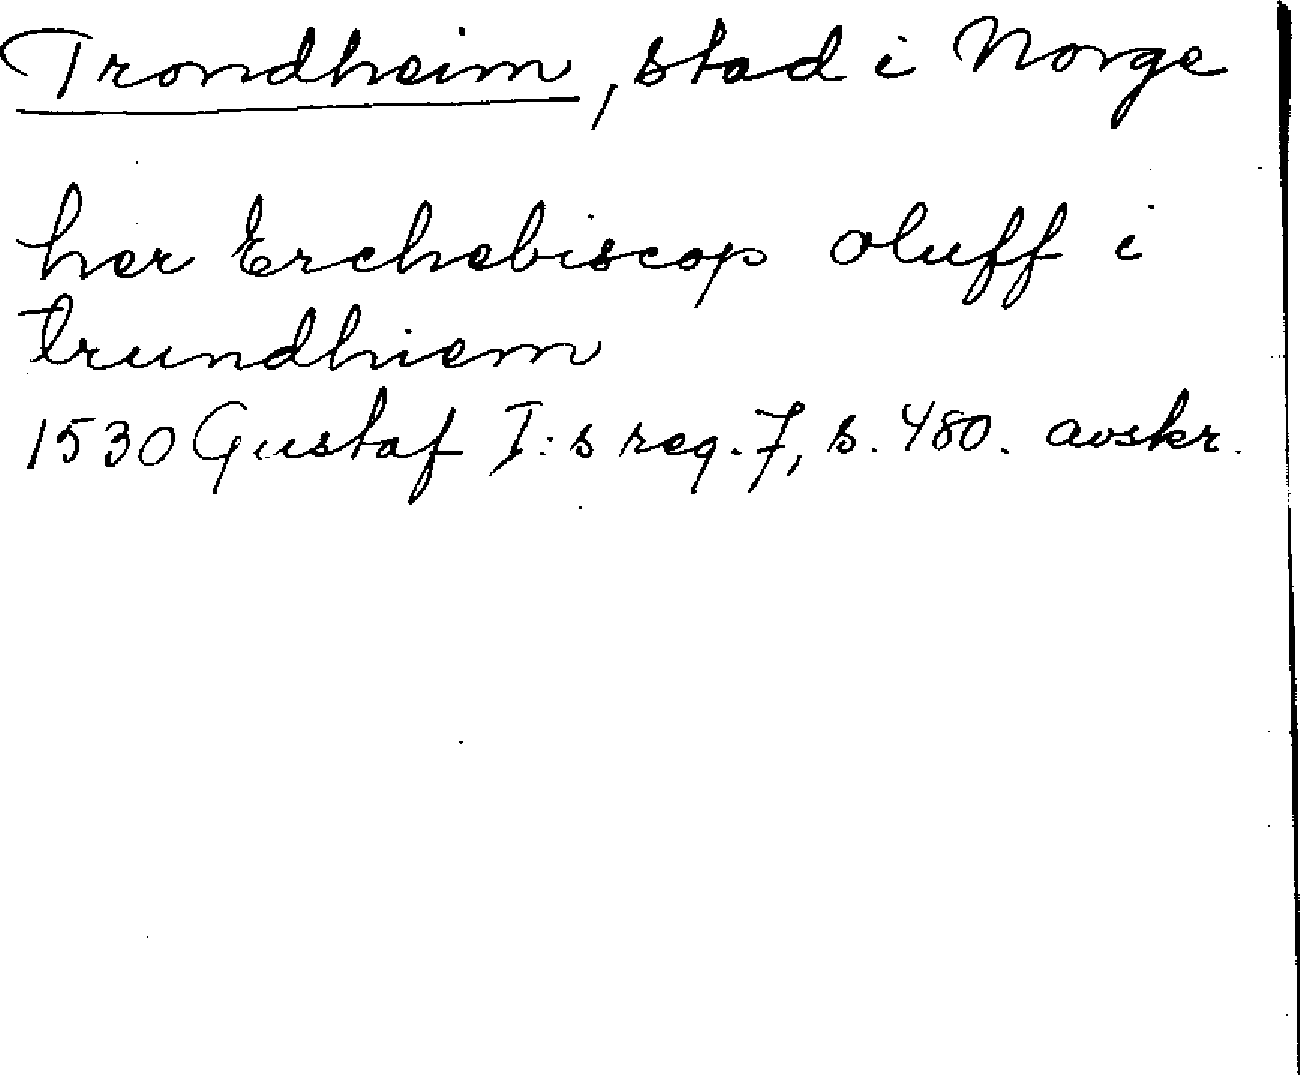 Trondheim, stad i Norge
her Erchebiscop oluff i
trundhiem
1530 Gustaf I:s reg. 7, s. 480. avskr.